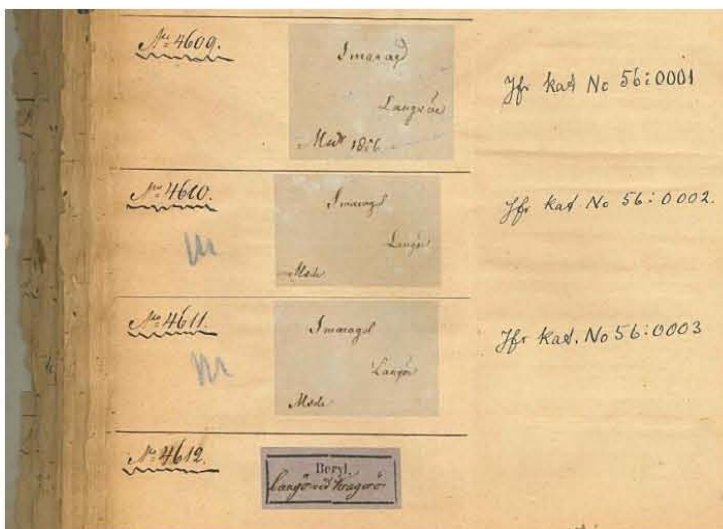 No 4609.
Smaragd
Langöe
Mus 1856
Jfr kat No 56:0001
No 4610.
Smaragd
Langöe
Jfr kat. No 56:0002.
No 4611.
Smaragd
Langöe
Jfr kat. No 56:0003
No 4612.
Beryl.
Langö ved Kragerö